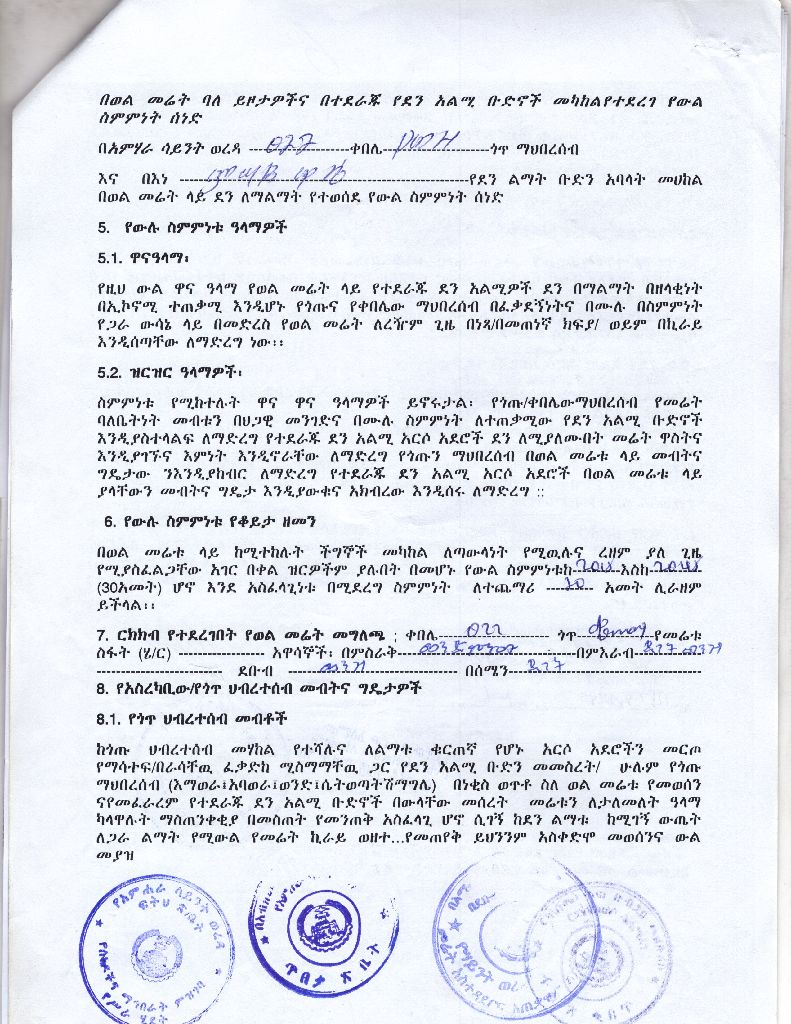 በወል መሬት ባለ ይዞታዎችና በተደራጁ የደን አልሚ ቡድኖች መካከልየተደረገ የውል
ስምምነት ሰነድ
በአምሃራ ሳይንት ወረዳ ------ 022 ------ቀበሌ------------ጎጥ ማህበረሰብ
እና በእነ ------------------------የደን ልማት ቡድን አባላት መሀከል
በወል መሬት ላይ ደን ለማልማት የተወሰደ የውል ስምምነት ሰነድ
5. የውሉ ስምምነቱ ዓላማዎች
5.1. ዋናዓላማ፡
የዚህ ውል ዋና ዓላማ የወል መሬት ላይ የተደራጁ ደን አልሚዎች ደን በማልማት በዘላቂነት
በኢኮኖሚ ተጠቃሚ እንዲሆኑ የጎጡና የቀበሌው ማህበረሰብ በፈቃደኝነትና በሙሉ በስምምነት
የጋራ ውሳኔ ላይ በመድረስ የወል መሬት ለረዥም ጊዜ በነጻ/በመጠነኛ ክፍያ/ ወይም በኪራይ
እንዲሰጣቸው ለማድረግ ነው፡፡
5.2. ዝርዝር ዓላማዎች፡
ስምምነቱ የሚከተሉት ዋና ዋና ዓላማዎች ይኖሩታል፡ የጎጡ/ቀበሌውማህበረሰብ የመሬት
ባለቤትነት መብቱን በህጋዊ መንገድና በሙሉ ስምምነት ለተጠቃሚው የደን አልሚ ቡድኖች
እንዲያስተላልፍ ለማድረግ የተደራጁ ደን አልሚ አርሶ አደሮች ደን ለሚያለሙበት መሬት ዋስትና
እንዲያገኙና እምነት እንዲኖራቸው ለማድረግ የጎጡን ማህበረሰብ በወል መሬቱ ላይ መብትና
ግዴታው ንእንዲያከብር ለማድረግ የተደራጁ ደን አልሚ አርሶ አደሮች በወል መሬቱ ላይ
ያላቸውን መብትና ግዴታ እንዲያውቁና አክብረው እንዲሰሩ ለማድረግ ::
6. የውሉ ስምምነቱ የቆይታ ዘመን
በወል መሬቱ ላይ ከሚተከሉት ችግኞች መካከል ለጣውላነት የሚዉሉና ረዘም ያለ ጊዜ
የሚያስፈልጋቸው አገር በቀል ዝርዎችም ያሉበት በመሆኑ የውል ስምምነቱከ--------እስከ--------
(30አመት) ሆኖ እንደ አስፈላጊነቱ በሚደረግ ስምምነት ለተጨማሪ --- 10 --- አመት ሊራዘም
ይችላል፡፡
7. ርክክብ የተደረገበት የወል መሬት መግለጫ ; ቀበሌ------ 022 ------ ጎጥ ----------የመሬቱ
ስፋት (ሄ/ር) --------------- አዋሳኞች፡ በምስራቅ----------------በምእራብ--------
-------------------- ደቡብ -------------------- በሰሜን--------------------
8. የአስረካቢው/የጎጥ ህብረተሰብ መብትና ግዴታዎች
8.1. የጎጥ ህብረተሰብ መብቶች
ከጎጡ ህብረተሰብ መሃከል የተሻሉና ለልማቱ ቁርጠኛ የሆኑ አርሶ አደሮችን መርጦ
የማሳተፍ/በራሳቸዉ ፈቃድከ ሚስማማቸዉ ጋር የደን አልሚ ቡድን መመስረት/ ሁሉም የጎጡ
ማህበረሰብ (እማወራ፤አባወራ፤ወንድ፤ሴትወጣትሽማግሌ) በነቂስ ወጥቶ ስለ ወል መሬቱ የመወሰን
ናየመፈራረም የተደራጁ ደን አልሚ ቡድኖች በውላቸው መሰረት መሬቱን ለታለመለት ዓላማ
ካላዋሉት ማስጠንቀቂያ በመስጠት የመንጠቅ አስፈላጊ ሆኖ ሲገኝ ከደን ልማቱ ከሚገኝ ውጤት
ለጋራ ልማት የሚውል የመሬት ኪራይ ወዘተ...የመጠየቅ ይህንንም አስቀድሞ መወሰንና ውል
መያዝ
የአምሐራ ሳይንት ወረዳ
ፍትህ ጽ/ቤት
ጥበቃ ጽ/ቤት